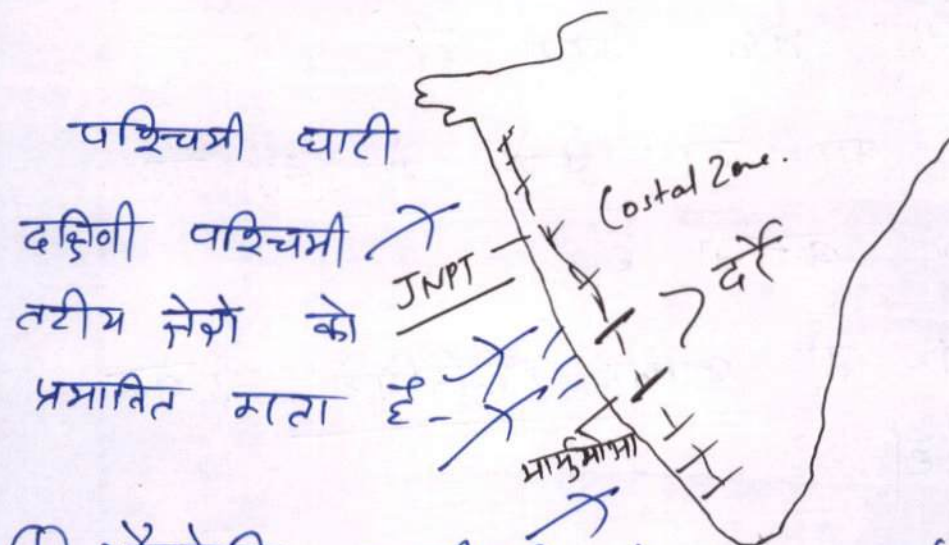 पश्चिमी घाटी
दक्षिणी पश्चिमी
तटीय क्षेत्रो को
प्रभावित करता है-
Costal Zone.
JNPT
दर्रे
मार्मुगोआ